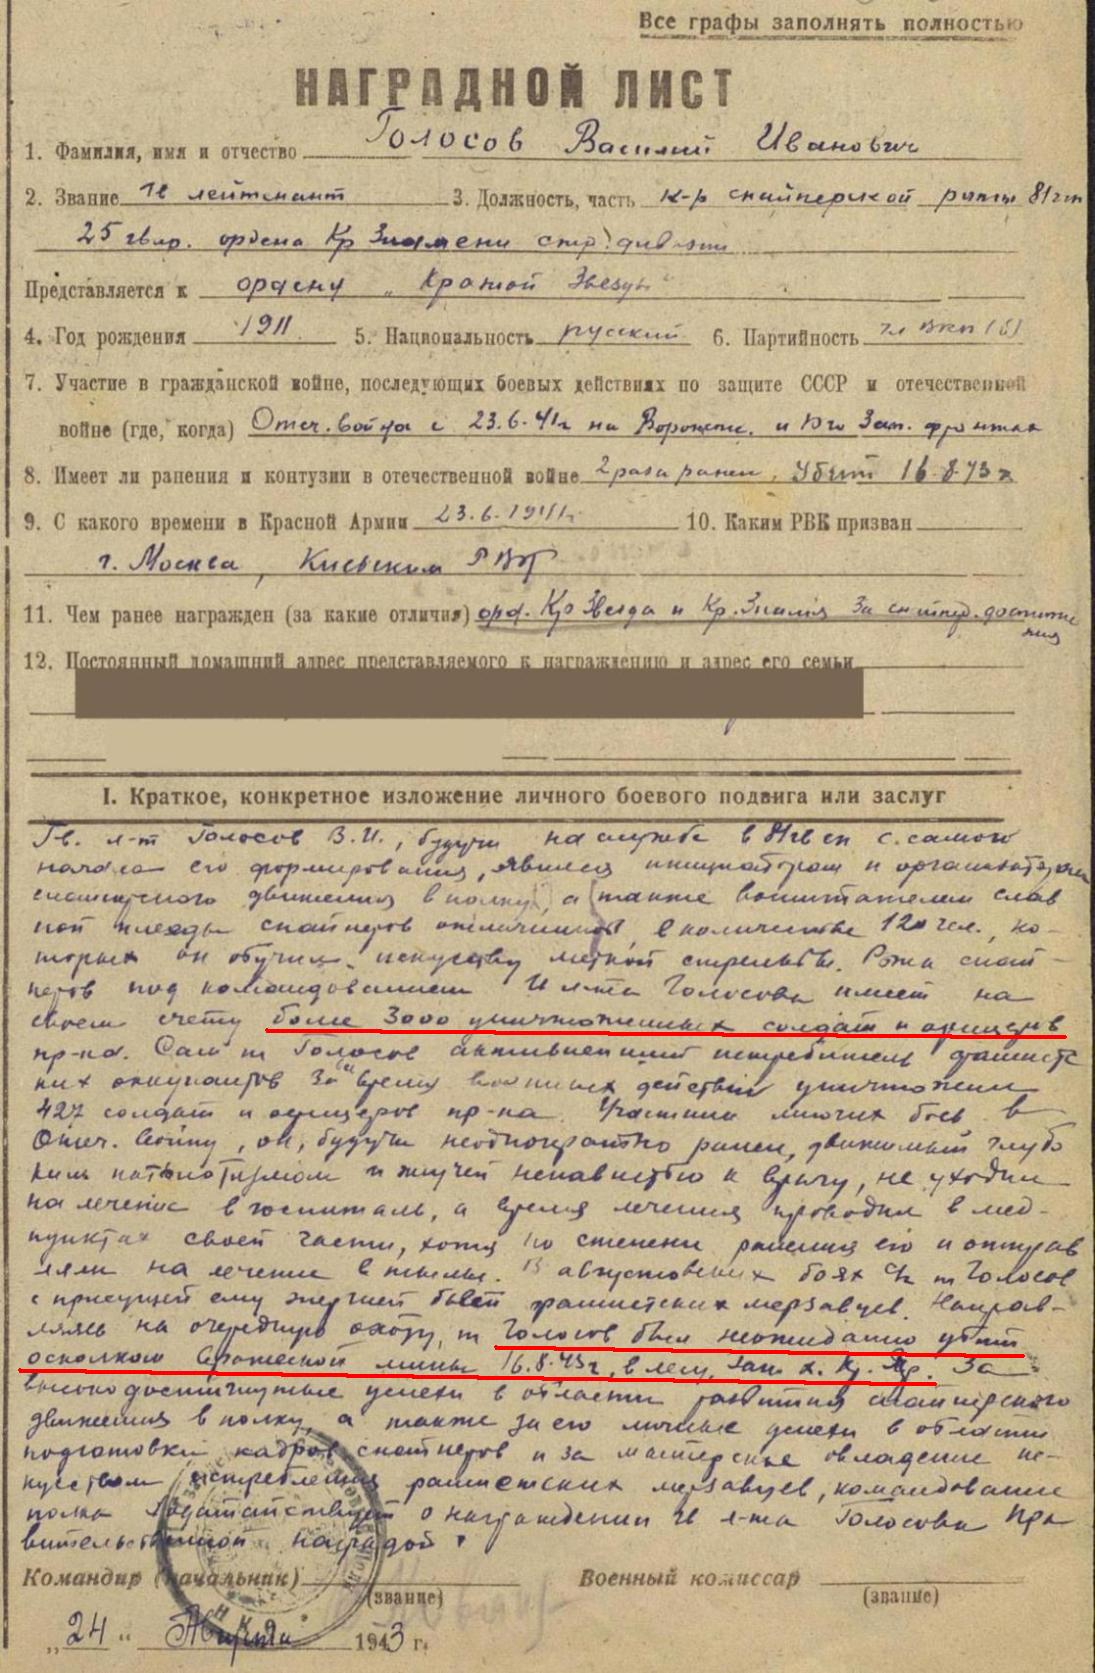 Все графы заполнять полностью
НАГРАДНОЙ ЛИСТ
1. Фамилия, имя и отчество Голосов Василий Иванович
2. Звание гв лейтенант 3. Должность, часть к-р снайперской роты 81 гсп
25 гвар. ордена Кр Знамени стр. дивизии
Представляется к ордену „Красной Звезды"
4. Год рождения 1911 5. Национальность русский 6. Партийность чл ВКП(б)
7. Участие в гражданской войне, последующих боевых действиях по защите СССР и отечественной
войне (где, когда) Отеч. война с 23.6.41г на Воронеж. и Юго Зап. фронтах
8. Имеет ли ранения и контузии в отечественной войне 2 раза ранен, Убит 16.8.43г
9. С какого времени в Красной Армии 23.6.1941г. 10. Каким РВК призван
г. Москва, Киевским РВК
11. Чем ранее награжден (за какие отличия) орд. Кр Звезда и Кр. Знамя За снайпер. достиже
ния
12. Постоянный домашний адрес представляемого к награждению и адрес его семьи
I. Краткое, конкретное изложение личного боевого подвига или заслуг
Гв. л-т Голосов В.И., будучи на службе в 81 гв сп с самого
начала его формирования, явился инициатором и организатором
снайперского движения в полку, а также воспитателем слав
ной плеяды снайперов отличников, в количестве 120 чел., ко-
торых он обучил искусству меткой стрельбы. Рота снай-
перов под командованием гв л-та Голосова имеет на
своем счету более 3000 уничтоженных солдат и офицеров
пр-ка. Сам т Голосов активнейший истребитель фашистс
ких оккупантов За время военных действий уничтожил
427 солдат и офицеров пр-ка. Участник многих боев в
Отеч. войну, он, будучи неоднократно ранен, движимый глубо
ким патриотизмом и жгучей ненавистью к врагу, не уходил
на лечение в госпиталь, а время лечения проводил в мед-
пунктах своей части, хотя по степени ранения его и отправ
ляли на лечение в тылы. В августовских боях т Голосов
с присущей ему энергией бьет фашистских мерзавцев. Направ-
ляясь на очередную охоту, т Голосов был неожиданно убит
осколком вражеской мины 16.8.43г, в лесу, зап х. Кр. Яр. За
высоко достигнутые успехи в области развития снайперского
движения в полку, а также за его личные успехи в области
подготовки кадров снайперов и за мастерское овладение ис-
кусством истребления фашистских мерзавцев, командование
полка ходатайствует о награждении гв л-та Голосова Пра
вительственной наградой.
Командир (начальник) Военный комиссар
(звание) (звание)
„24" Августа 1943 г.